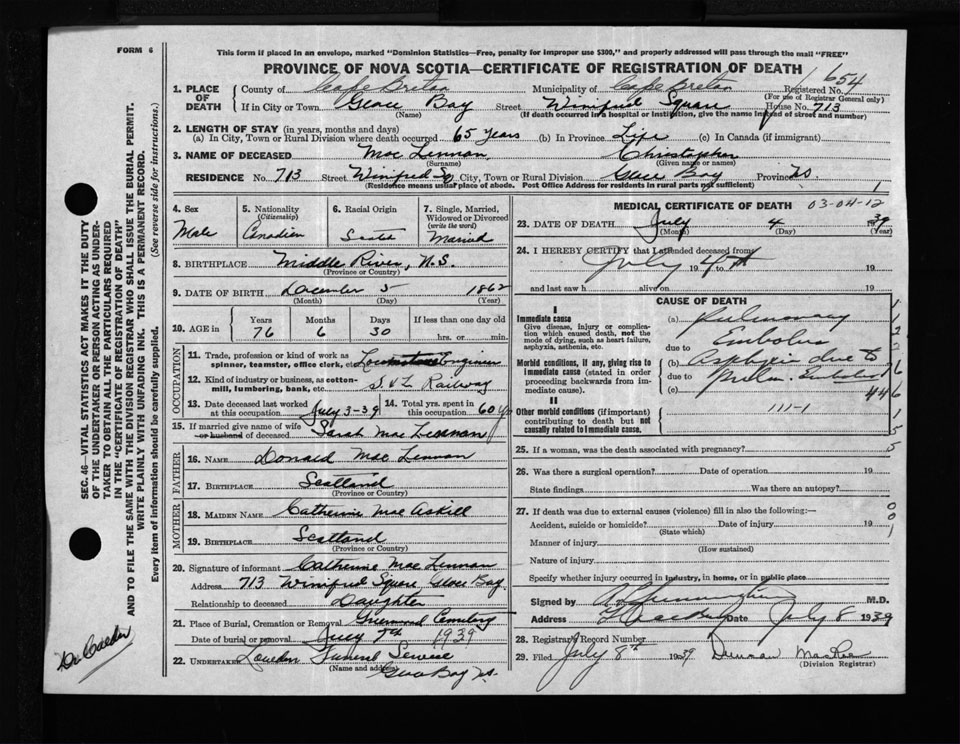 FORM 6
This form if placed in an envelope, marked "Dominion Statistics—Free, penalty for improper use $300," and properly addressed will pass through the mail "FREE"
PROVINCE OF NOVA SCOTIA—CERTIFICATE OF REGISTRATION OF DEATH
1. PLACE OF DEATH
County of Cape Breton Municipality of Cape Breton Registered No. 654
(For use of Registrar General only)
If in City or Town Glace Bay Street Winifred Square House No. 713
(Name) (If death occurred in a hospital or institution, give the name instead of street and number)
2. LENGTH OF STAY (in years, months and days)
(a) In City, Town or Rural Division where death occurred 65 years (b) In Province Life (c) In Canada (if immigrant)
3. NAME OF DECEASED Mac Lennan, Christopher
(Surname) (Given name or names)
RESIDENCE No. 713 Street Winifred Sq City, Town or Rural Division Glace Bay Province NS
(Residence means usual place of abode. Post Office Address for residents in rural parts not sufficient)
1
4. Sex Male
5. Nationality (Citizenship) Canadian
6. Racial Origin Scotch
7. Single, Married, Widowed or Divorced (write the word) Married
8. BIRTHPLACE Middle River, N.S.
(Province or Country)
9. DATE OF BIRTH December 5 1862
(Month) (Day) (Year)
10. AGE in Years 76 Months 6 Days 30 If less than one day old hrs. or min.
OCCUPATION
11. Trade, profession or kind of work as spinner, teamster, office clerk, etc. Locomotive Engineer
12. Kind of industry or business, as cotton-mill, lumbering, bank, etc. S & L Railway
13. Date deceased last worked at this occupation July 3-39
14. Total yrs. spent in this occupation 60 y
15. If married give name of wife or husband of deceased Sarah Mac Lennan
FATHER
16. NAME Donald Mac Lennan
17. BIRTHPLACE Scotland
(Province or Country)
MOTHER
18. MAIDEN NAME Catherine Mac Askill
19. BIRTHPLACE Scotland
(Province or Country)
20. Signature of informant Catherine Mac Lennan
Address 713 Winifred Square Glace Bay
Relationship to deceased Daughter
21. Place of Burial, Cremation or Removal Greenwood Cemetery
Date of burial or removal July 7th 1939
22. UNDERTAKER Funeral Service
(Name and address) Glace Bay NS
MEDICAL CERTIFICATE OF DEATH 03-04-12
23. DATE OF DEATH July 4 1939
(Month) (Day) (Year)
24. I HEREBY CERTIFY that I attended deceased from
July 19 4th to 19
and last saw h alive on 19
CAUSE OF DEATH
I
Immediate cause
Give disease, injury or complication which caused death, not the mode of dying, such as heart failure, asphyxia, asthenia, etc.
(a) Pulmonary
due to Embolus
Morbid conditions, if any, giving rise to immediate cause (stated in order proceeding backwards from immediate cause).
(b) Asphyxia due to
due to Pulm. Embolus
(c) 446
II
Other morbid conditions (if important) contributing to death but not causally related to immediate cause.
111-1
25. If a woman, was the death associated with pregnancy?
26. Was there a surgical operation? Date of operation 19
State findings Was there an autopsy?
27. If death was due to external causes (violence) fill in also the following:—
Accident, suicide or homicide? Date of injury 19
(State which)
Manner of injury
(How sustained)
Nature of injury
Specify whether injury occurred in industry, in home, or in public place
Signed by M.D.
Address Glace Bay Date July 8 1939
28. Registrar's Record Number
29. Filed July 8th 1939
(Division Registrar)
SEC. 46—VITAL STATISTICS ACT MAKES IT THE DUTY OF THE UNDERTAKER OR PERSON ACTING AS UNDERTAKER TO OBTAIN ALL THE PARTICULARS REQUIRED IN THE "CERTIFICATE OF REGISTRATION OF DEATH"
AND TO FILE THE SAME WITH THE DIVISION REGISTRAR WHO SHALL ISSUE THE BURIAL PERMIT.
WRITE PLAINLY WITH UNFADING INK. THIS IS A PERMANENT RECORD.
Every item of information should be carefully supplied. (See reverse side for instructions.)